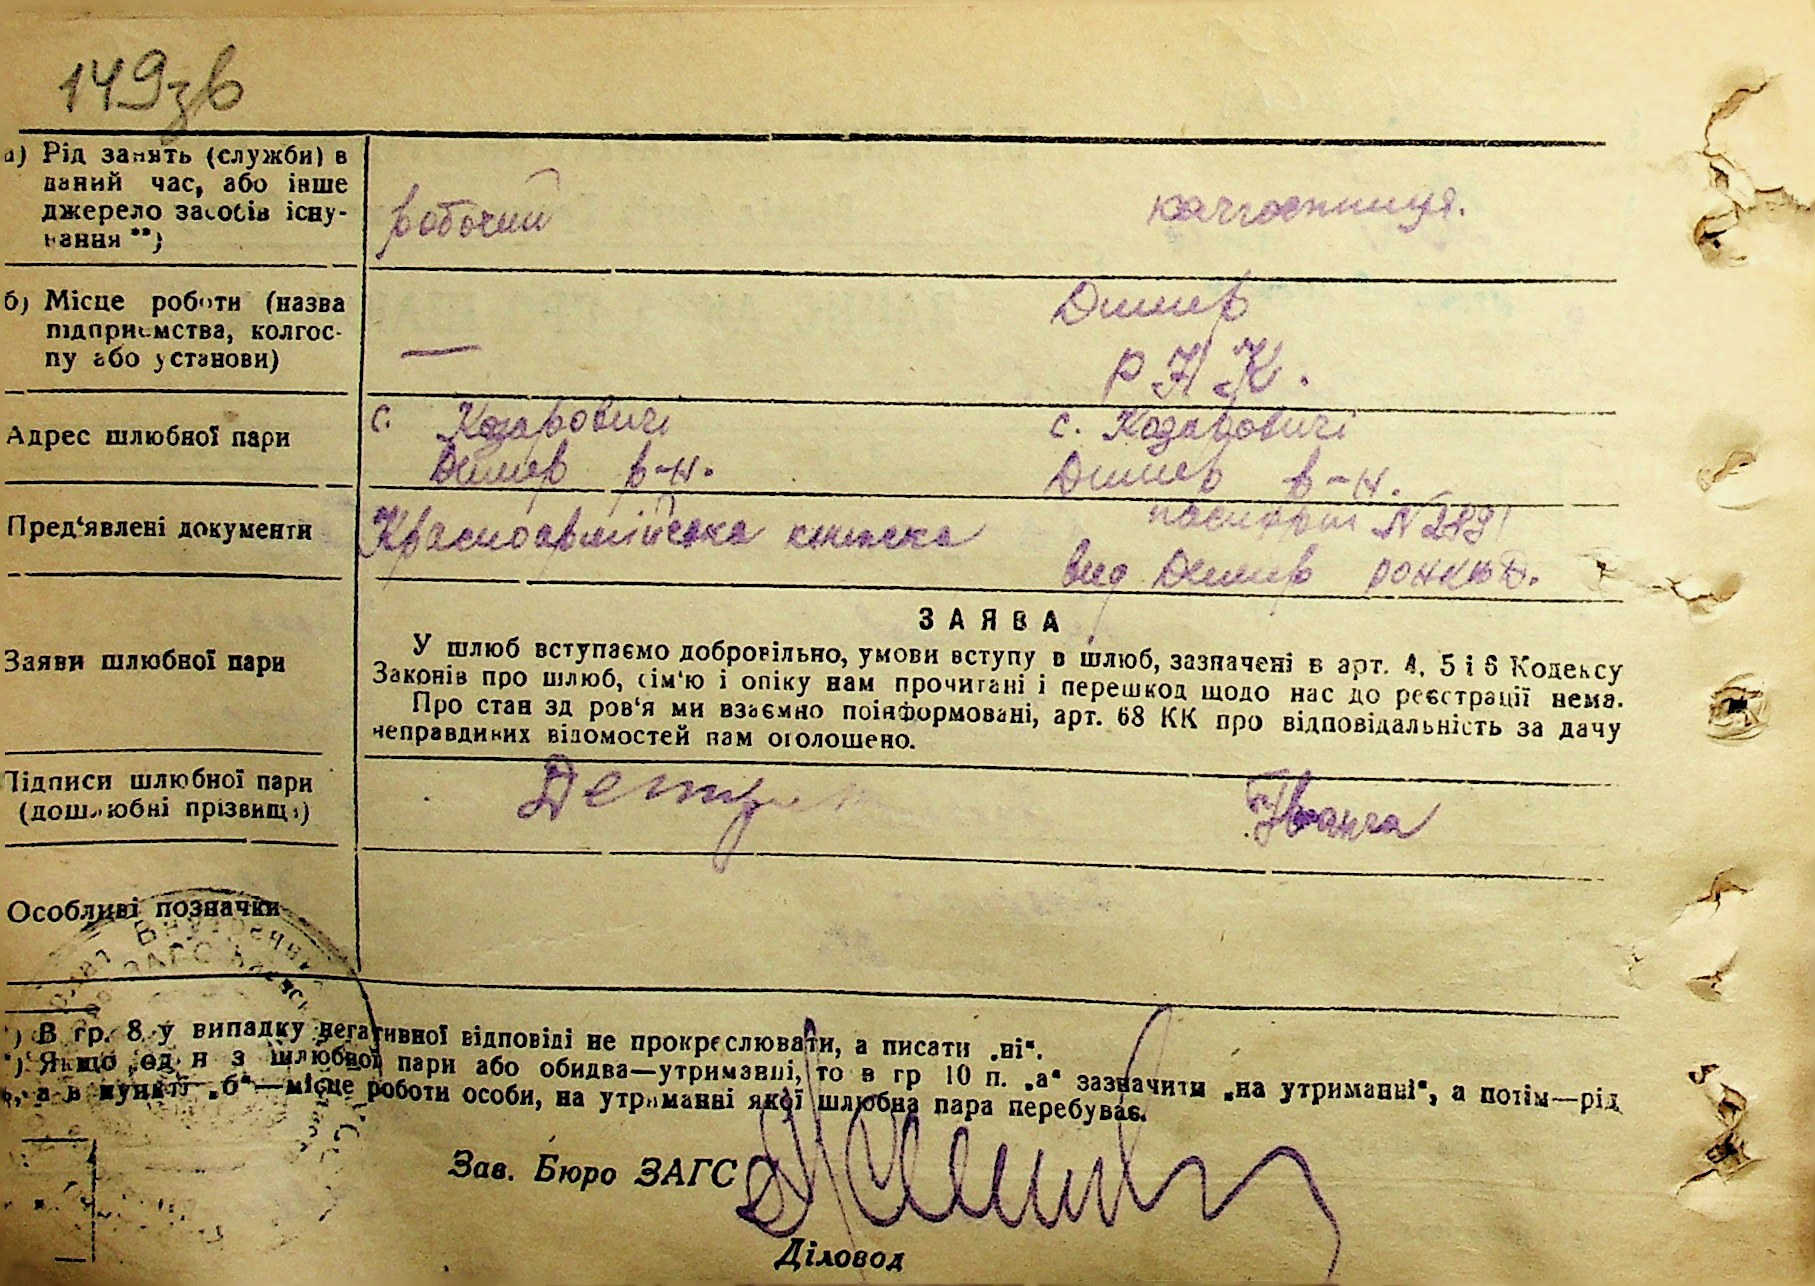 149зв
а) Рід занять (служби) в
даний час, або інше
джерело засобів існу-
вання **)
робочий
колгоспниця.
б) Місце роботи (назва
підприємства, колгос-
пу або установи)
—
Димер
Р Н К.
Адрес шлюбної пари
с. Козаровичі
Димер р-н.
с. Козаровичі
Димер р-н.
Пред'явлені документи
Красноармійська книжка
паспорт №289
вид Димер РОНКВД.
Заяви шлюбної пари
ЗАЯВА
У шлюб вступаємо добровільно, умови вступу в шлюб, зазначені в арт. 4, 5 і 6 Кодексу
Законів про шлюб, сім'ю і опіку нам прочитані і перешкод щодо нас до реєстрації нема.
Про стан здоров'я ми взаємно поінформовані, арт. 68 КК про відповідальність за дачу
неправдивих відомостей нам оголошено.
Підписи шлюбної пари
(дошлюбні прізвища)
Іванча
Особливі позначки
*) В гр. 8 у випадку негативної відповіді не прокреслювати, а писати „ні“.
**) Якщо один з шлюбної пари або обидва—утриманні, то в гр 10 п. „а“ зазначити „на утриманні“, а потім—рід
а в пункті „б“—місце роботи особи, на утриманні якої шлюбна пара перебуває.
Зав. Бюро ЗАГС
Діловод